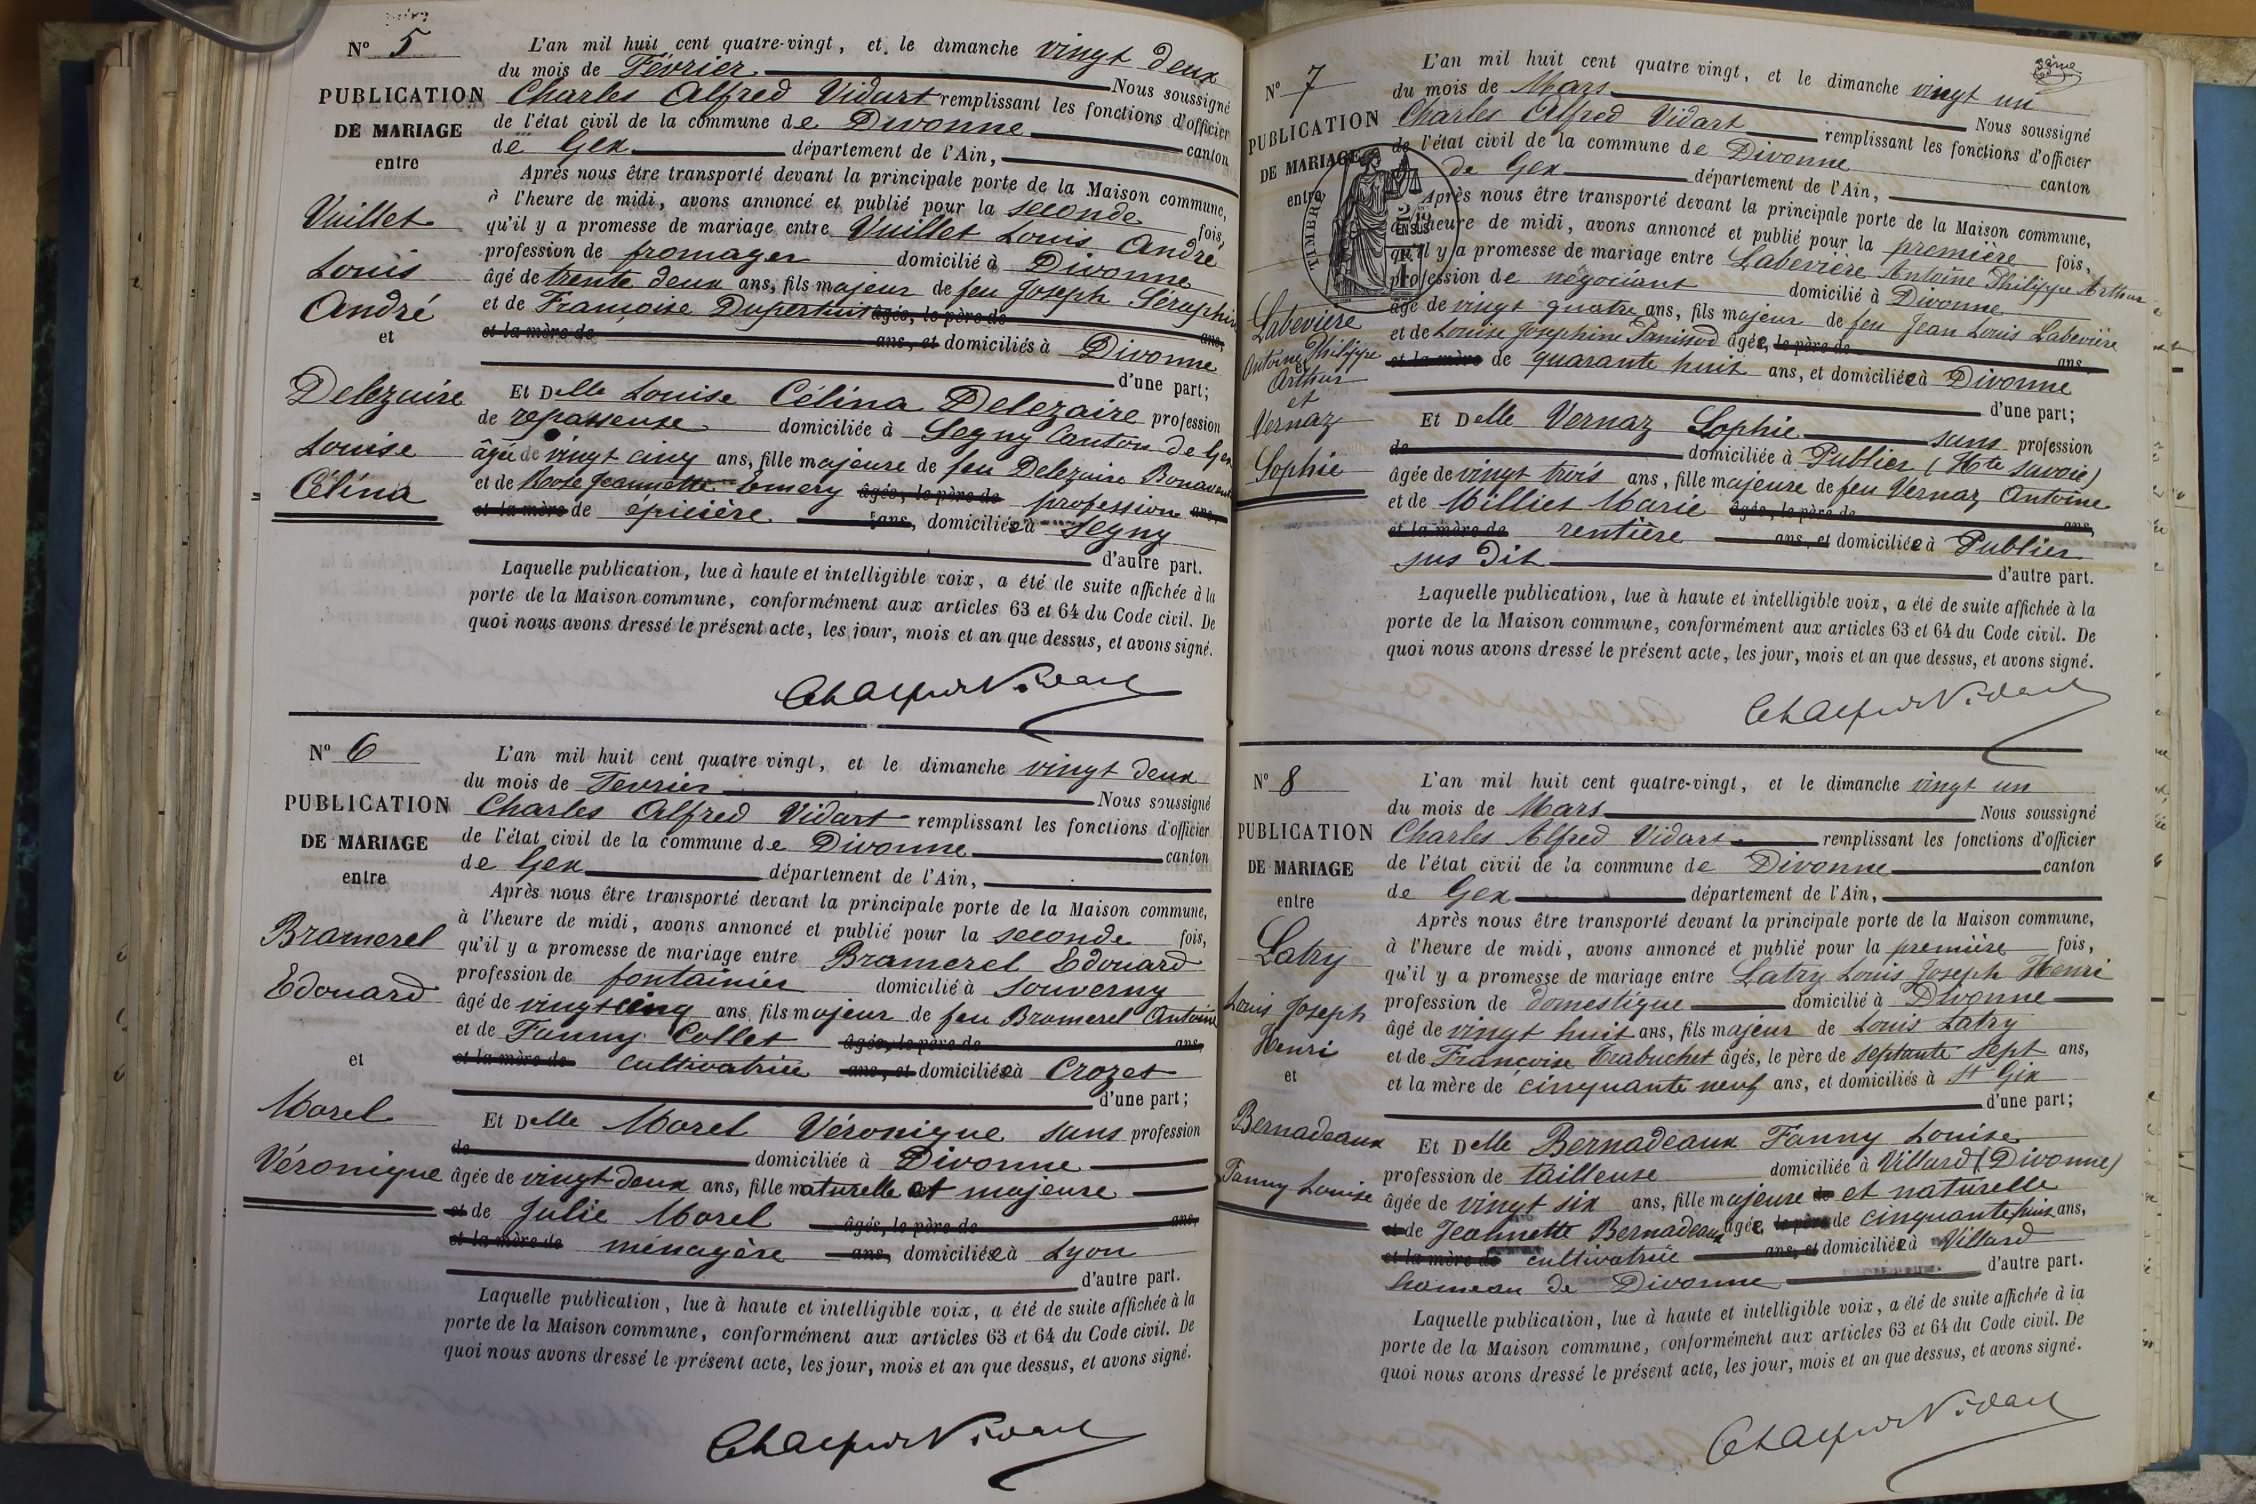 N° 5
PUBLICATION
DE MARIAGE
entre
Vuillet
Louis
André
et
Delezaire
Louise
Célina
L'an mil huit cent quatre-vingt, et le dimanche vingt deux
du mois de Février Nous soussigné
Charles Alfred Vidart remplissant les fonctions d'officier
de l'état civil de la commune de Divonne canton
de Gex département de l'Ain,
Après nous être transporté devant la principale porte de la Maison commune,
à l'heure de midi, avons annoncé et publié pour la seconde fois,
qu'il y a promesse de mariage entre Vuillet Louis André
profession de fromager domicilié à Divonne
âgé de trente deux ans, fils majeur de feu Joseph Séraphin
et de Françoise Dupertuis âgés, le père de ans,
et la mère de ans, et domiciliés à Divonne
d'une part;
Et Delle Louise Célina Delezaire profession
de repasseuse domiciliée à Segny Canton de Gex
âgée de vingt cinq ans, fille majeure de feu Delezaire
et de Jeannette Emery âgés, le père de profession ans,
et la mère de épicière ans, domiciliée à Segny
d'autre part.
Laquelle publication, lue à haute et intelligible voix, a été de suite affichée à la
porte de la Maison commune, conformément aux articles 63 et 64 du Code civil. De
quoi nous avons dressé le présent acte, les jour, mois et an que dessus, et avons signé.
Ch Alfred Vidart
N° 6
PUBLICATION
DE MARIAGE
entre
Bramerel
Edouard
et
Morel
Véronique
L'an mil huit cent quatre vingt, et le dimanche vingt deux
du mois de Fevrier Nous soussigné
Charles Alfred Vidart remplissant les fonctions d'officier
de l'état civil de la commune de Divonne canton
de Gex département de l'Ain,
Après nous être transporté devant la principale porte de la Maison commune,
à l'heure de midi, avons annoncé et publié pour la seconde fois,
qu'il y a promesse de mariage entre Bramerel Edouard
profession de fontainier domicilié à Souverny
âgé de vingt cinq ans, fils majeur de feu Bramerel Antoine
et de Fanny Collet âgés, le père de ans,
et la mère de cultivatrice ans, et domiciliée à Crozet
d'une part;
Et Delle Morel Véronique sans profession
de domiciliée à Divonne
âgée de vingt deux ans, fille naturelle et majeure
et de Julie Morel âgés, le père de ans,
et la mère de ménagère ans, domiciliée à Lyon
d'autre part.
Laquelle publication, lue à haute et intelligible voix, a été de suite affichée à la
porte de la Maison commune, conformément aux articles 63 et 64 du Code civil. De
quoi nous avons dressé le présent acte, les jour, mois et an que dessus, et avons signé.
Ch Alfred Vidart
N° 7
PUBLICATION
DE MARIAGE
entre
TIMBRE
Labevière
Antoine Philippe
Arthur
et
Vernaz
Sophie
L'an mil huit cent quatre vingt, et le dimanche vingt un
du mois de Mars Nous soussigné
Charles Alfred Vidart remplissant les fonctions d'officier
de l'état civil de la commune de Divonne canton
de Gex département de l'Ain,
Après nous être transporté devant la principale porte de la Maison commune,
à l'heure de midi, avons annoncé et publié pour la première fois,
qu'il y a promesse de mariage entre Labevière Antoine Philippe Arthur
profession de négociant domicilié à Divonne
âgé de vingt quatre ans, fils majeur de feu Jean Louis Labevière
et de Louise Josephine Panissod âgée, le père de ans,
et la mère de quarante huit ans, et domiciliée à Divonne
d'une part;
Et Delle Vernaz Sophie sans profession
de domiciliée à Publier (Hte Savoie)
âgée de vingt trois ans, fille majeure de feu Vernaz Antoine
et de Milliet Marie âgés, le père de ans,
et la mère de rentière ans, et domiciliée à Publier
sus dit d'autre part.
Laquelle publication, lue à haute et intelligible voix, a été de suite affichée à la
porte de la Maison commune, conformément aux articles 63 et 64 du Code civil. De
quoi nous avons dressé le présent acte, les jour, mois et an que dessus, et avons signé.
Ch Alfred Vidart
N° 8
PUBLICATION
DE MARIAGE
entre
Latry
Louis Joseph
Henri
et
Bernadeaux
Fanny Louise
L'an mil huit cent quatre-vingt, et le dimanche vingt un
du mois de Mars Nous soussigné
Charles Alfred Vidart remplissant les fonctions d'officier
de l'état civil de la commune de Divonne canton
de Gex département de l'Ain,
Après nous être transporté devant la principale porte de la Maison commune,
à l'heure de midi, avons annoncé et publié pour la première fois,
qu'il y a promesse de mariage entre Latry Louis Joseph Henri
profession de domestique domicilié à Divonne
âgé de vingt huit ans, fils majeur de Louis Latry
et de Françoise Trabuchet âgés, le père de septante sept ans,
et la mère de cinquante neuf ans, et domiciliés à St Gix
d'une part;
Et Delle Bernadeaux Fanny Louise
profession de tailleuse domiciliée à Villard (Divonne)
âgée de vingt six ans, fille majeure de et naturelle
et de Jeannette Bernadeaux âgée, le père de cinquante huit ans,
et la mère de cultivatrice ans, et domiciliée à Villard
hameau de Divonne d'autre part.
Laquelle publication, lue à haute et intelligible voix, a été de suite affichée à la
porte de la Maison commune, conformément aux articles 63 et 64 du Code civil. De
quoi nous avons dressé le présent acte, les jour, mois et an que dessus, et avons signé.
Ch Alfred Vidart